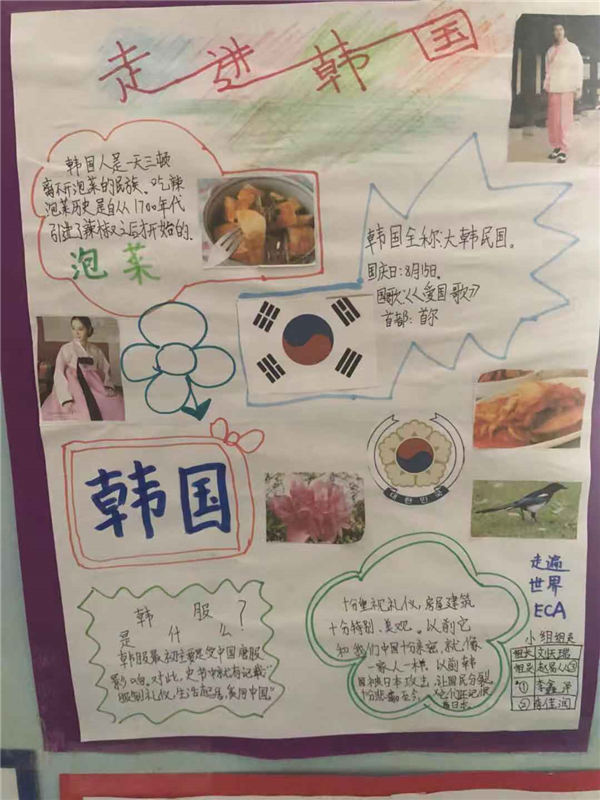 走进韩国
韩国人是一天三顿
离不开泡菜的民族。吃辣
泡菜历史是自从1700年代
引进了辣椒之后才开始的.
泡菜
韩国全称:大韩民国。
国庆日:8月15日。
国歌:《爱国歌》
首都:首尔
韩国
대한민국
韩服
是什么?
韩服最初主要是受中国唐服
影响。对此,史书中就有记载"
服制礼仪,生活起居,奚同中国。"
十分重视礼仪,房屋建筑
十分特别、美观。以前它
和我们中国十分亲密,就像
一家人一样,以前韩
国被日本攻击,让国民分裂
十分悲痛至今,
走遍
世界
ECA
小组组员
组长 刘天瑞
组员
① 李鑫泽
② 佳润